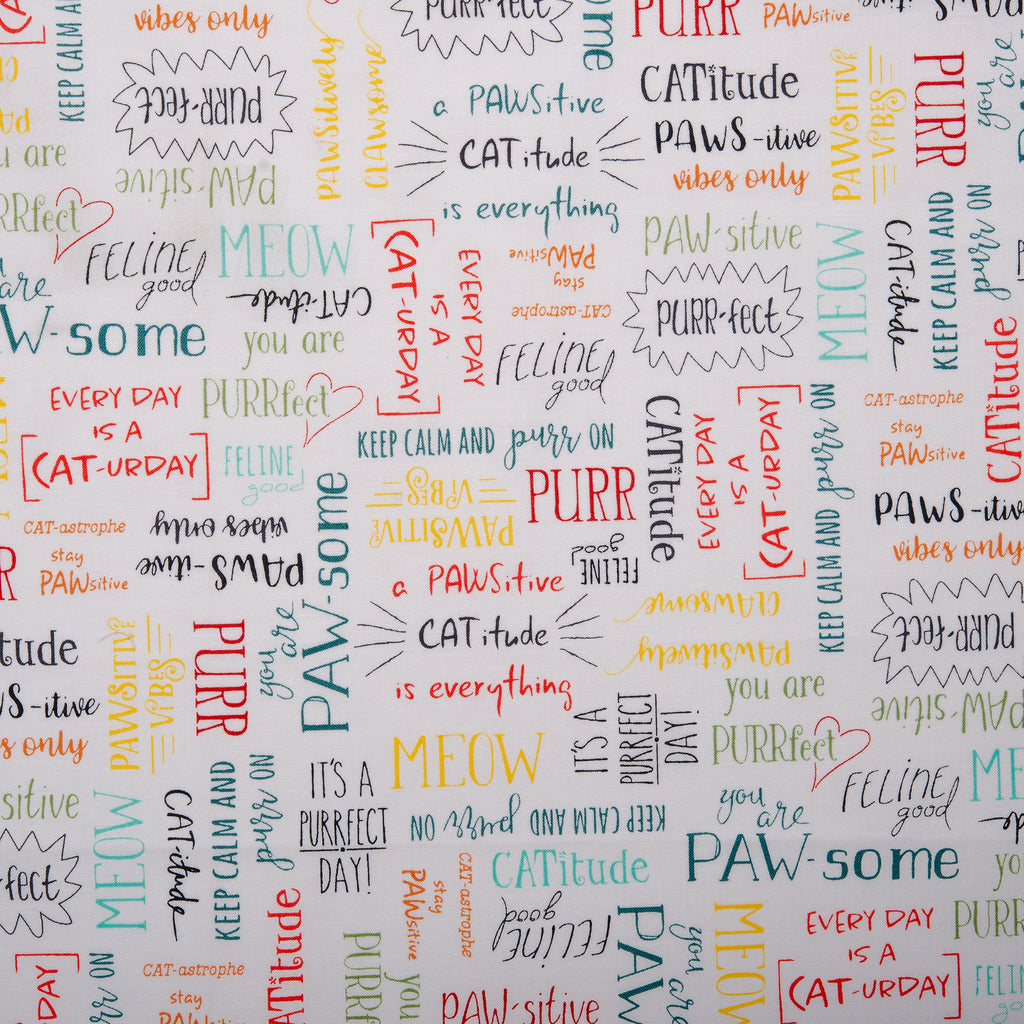 vibes only
KEEP CALM A
PAWSitively
CLAWsome
PURR-fect
some
PURR
PAWsitive
PURR-fect
a PAWSitive
CATitude
is everything
CATitude
PAWS-itive
vibes only
PAWSITIVE
VIBES
PURR
you are
you are
PAW-sitive
RRfect
FELINE
good
MEOW
CAT-itude
[CAT-URDAY]
IS A
EVERY DAY
PAWsitive
stay
CAT-astrophe
PAW-sitive
PURR-fect
MEOW
CAT-itude
KEEP CALM AND
purr ON
are
W-some
you are
FELINE
good
CATitude
EVERY DAY
IS A
[CAT-URDAY]
PURRfect
FELINE
good
KEEP CALM AND purr ON
PAWSITIVE
VIBES
PURR
CATitude
EVERY DAY
IS A
[CAT-URDAY]
KEEP CALM AND purr ON
CAT-astrophe
stay
PAWsitive
PAWS-itive
vibes only
CAT-astrophe
stay
PAWsitive
PAWS-itive
vibes only
you are
PAW-some
a PAWSitive
CATitude
is everything
FELINE
good
PAWSitively
CLAWsome
PURR-fect
tude
S-itive
s only
PAWSITIVE
VIBES
PURR
you are
PURRfect
PAW-sitive
IT'S A
PURRFECT
DAY!
MEOW
sitive
fect
MEOW
CAT-itude
KEEP CALM AND
purr ON
IT'S A
PURRFECT
DAY!
KEEP CALM AND purr ON
FELINE
good
ME
you are
PAW-some
CATitude
CAT-astrophe
stay
PAWsitive
FELINE
good
CATitude
PAW
you are
MEOW
EVERY DAY
IS A
[CAT-URDAY]
PURR
yo
FELIN
DAY]
purr ON
CAT-astrophe
stay
PAWsitive
PURRf
you
PAW-sitive